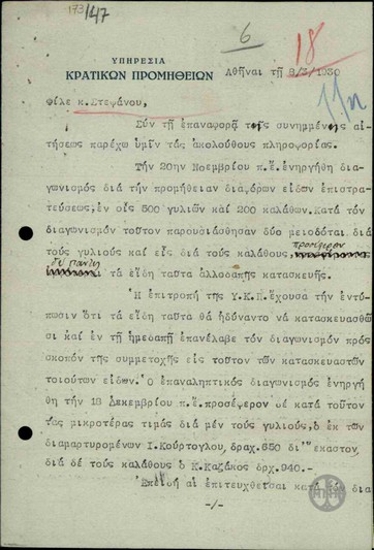 173/147
6
18
11η
ΥΠΗΡΕΣΙΑ
ΚΡΑΤΙΚΩΝ ΠΡΟΜΗΘΕΙΩΝ
Ἀθῆναι τῇ 8/3/1930
Φίλε κ.Στεφάνου,
Σύν τῇ ἐπαναφορᾷ τῆς συνημμένης αἰ-
τήσεως παρέχω ὑμῖν τάς ἀκολούθους πληροφορίας.
Τήν 20ην Νοεμβρίου π.ἔ.ἐνηργήθη δια-
γωνισμός διά τήν προμήθειαν διαφόρων εἰδῶν ἐπιστρα-
τεύσεως,ἐν οἷς 500 γυλιῶν καί 200 καλάθων.Κατά τόν
διαγωνισμόν τοῦτον παρουσιάσθησαν δύο μειοδόται διά
τούς γυλιούς καί εἷς διά τούς καλάθους, προσέφερον
δέ πάντες τά εἴδη ταῦτα ἀλλοδαπῆς κατασκευῆς.
Ἡ ἐπιτροπή τῆς Υ.Κ.Π.ἔχουσα τήν ἐντύ-
πωσιν ὅτι τά εἴδη ταῦτα θά ἠδύναντο νά κατασκευασθῶ
σι καί ἐν τῇ ἡμεδαπῇ ἐπανέλαβε τόν διαγωνισμόν πρός
σκοπόν τῆς συμμετοχῆς εἰς τοῦτον τῶν κατασκευαστῶν
τοιούτων εἰδῶν.Ὁ ἐπαναληπτικός διαγωνισμός ἐνηργή
θη τήν 18 Δεκεμβρίου π.ἔ.προσέφερον δέ κατά τοῦτον
τάς μικροτέρας τιμάς διά μέν τούς γυλιούς,ὁ ἐκ τῶν
διαμαρτυρομένων Ι.Κούρτογλου,δραχ.650 δι' ἕκαστον,
διά δέ τούς καλάθους ὁ Κ.Καζάκος δρχ.940.-
Ἐπειδή αἱ ἐπιτευχθεῖσαι κατά τόν δια
-/-